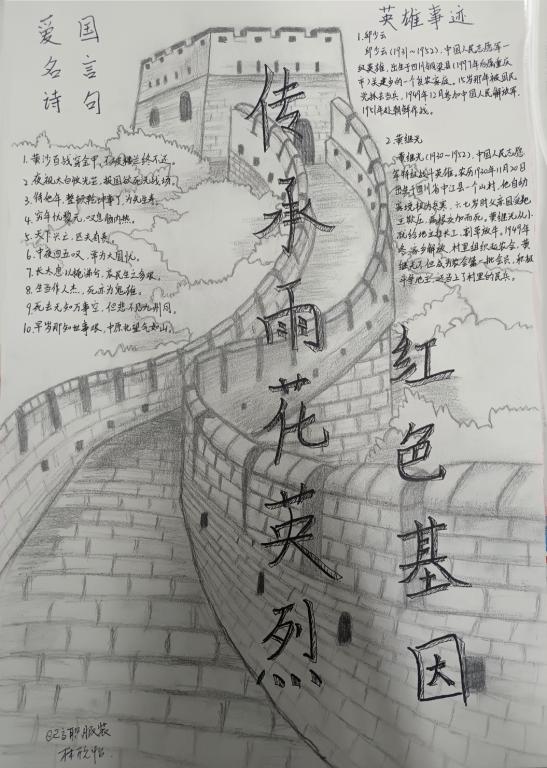 爱国
名言
诗句
1. 黄沙百战穿金甲,不破楼兰终不还。
2. 夜视太白收光芒,报国欲死无战场。
4. 穷年忧黎元,叹息肠内热。
5. 天下兴亡,匹夫有责。
6. 中夜四五叹,常为大国忧。
7. 长太息以掩涕兮,哀民生之多艰。
8. 生当作人杰,死亦为鬼雄。
9. 死去元知万事空,但悲不见九州同。
10. 早岁那知世事艰,中原北望气如山。
英雄事迹
1. 邱少云
邱少云(1931~1952),中国人民志愿军一
级英雄,出生于四川铜梁县(1997年后属重庆
市)关建乡的一个贫农家庭。15岁那年被国民
党抓去当兵,1949年12月参加中国人民解放军,
1951年赴朝鲜作战。
2. 黄继光
黄继光(1930~1952),中国人民志愿
军特级战斗英雄。农历1930年11月20日
出生于四川省中江县一个山村,
六七岁时父亲因受地
主欺压,病恨交加而死。黄继光从小
就给地主打长工,割草放牛。1949年
冬,家乡解放,村里组织起农会,黄
继光不但成为农会第一批会员,积极
斗争地主,还当上了村里的民兵。
传承雨花英烈
红色基因
职服装